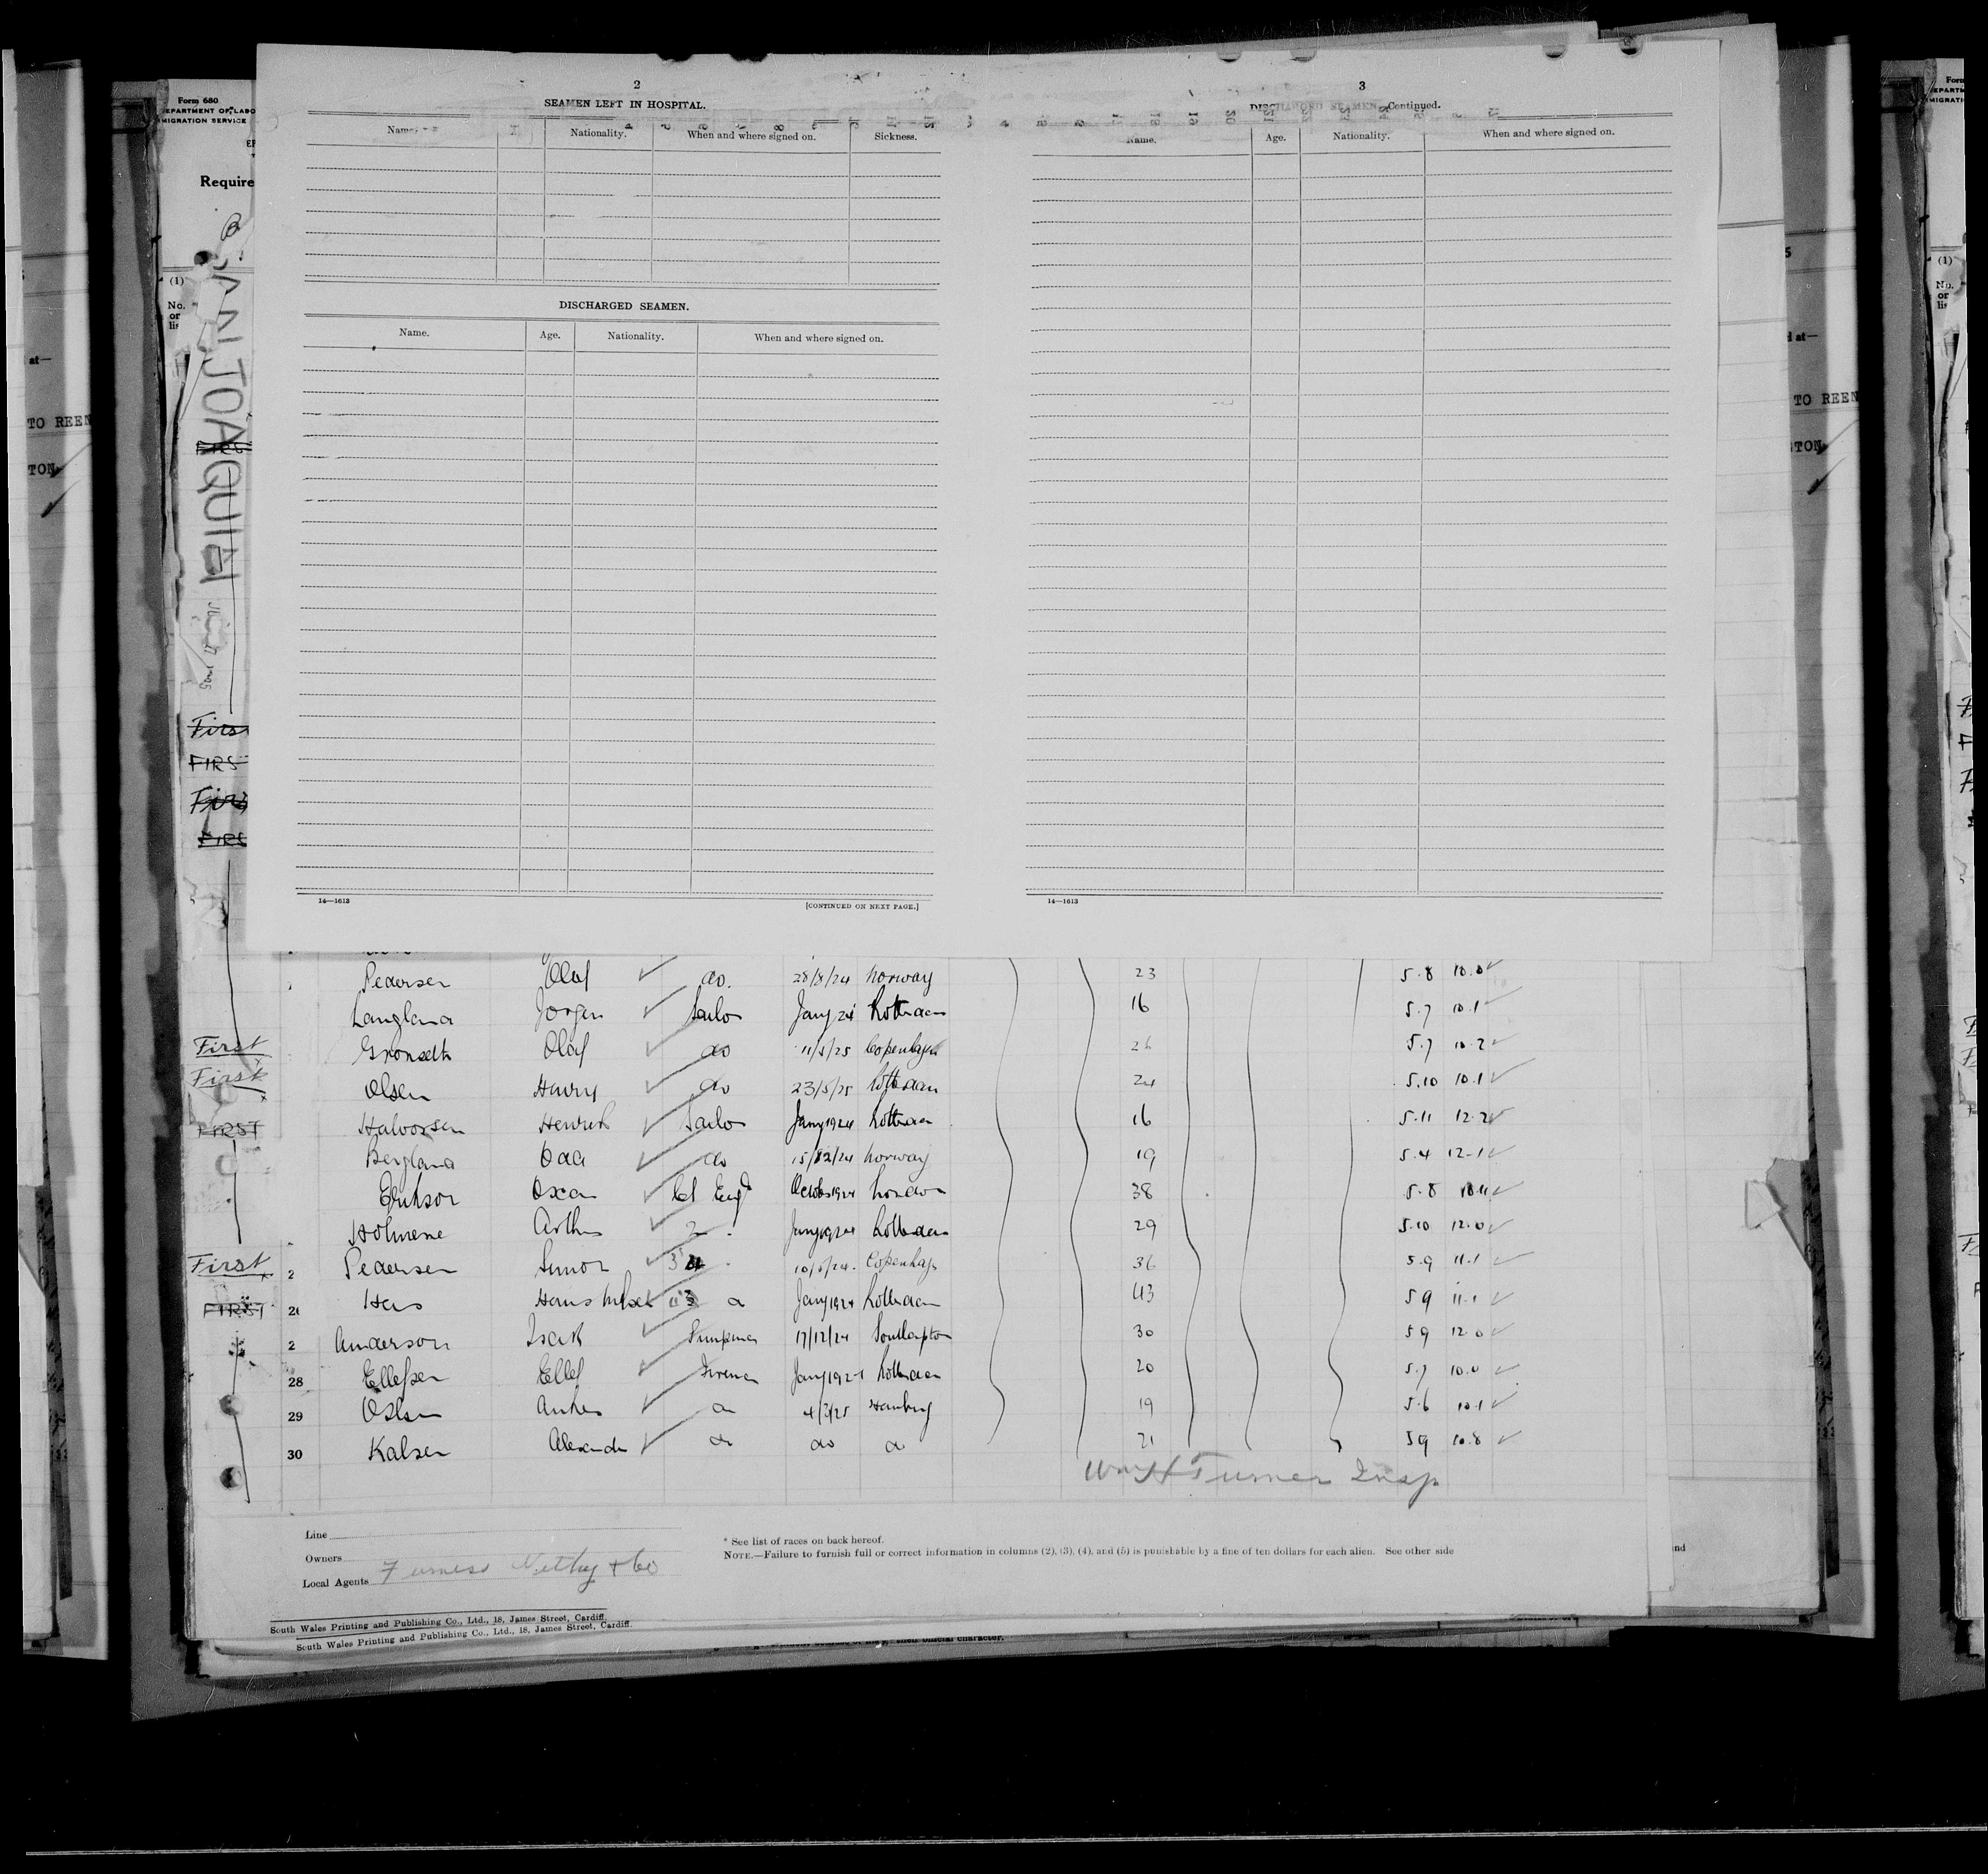 Form 680
2
SEAMEN LEFT IN HOSPITAL.
Name. Nationality. When and where signed on. Sickness.
DISCHARGED SEAMEN.
Name. Age. Nationality. When and where signed on.
14—1613 [CONTINUED ON NEXT PAGE.]
3
DISCHARGED SEAMEN—Continued.
Name. Age. Nationality. When and where signed on.
14—1613
Require
(1)
No.
on
at—
TO REEN
TON
SAN JOAQUIN
Firs
FIRS
Firs
FIRS
Pedersen Olaf do. 28/8/24 Norway 23 5.8 10.0
Langland Jorgen Sailor Jany 24 Rotterdam 16 5.7 10.1
First Gronseth Olaf do 11/5/25 Copenhagen 26 5.7 10.2
First Olsen Harry do 23/5/25 Rotterdam 24 5.10 10.1
FIRST Halvorsen Henrik Sailor Jany 1924 Rotterdam 16 5.11 12.2
Bergland Odd do 15/12/24 Norway 19 5.4 12.1
Erikson Oscar Ch Eng October 1924 London 38 5.8 10.11
Holmene Arthur 2 Jany 1924 Rotterdam 29 5.10 12.0
First 2 Pedersen Simon 3 10/5/24 Copenhag 36 5.9 11.1
FIRST Hans Jany 1924 Rotterdam 43 5.9 11.1
2 Anderson Isak Pumpman 17/12/24 Southampton 30 5.9 12.0
28 Ellefsen Ellef Fireman Jany 192 Rotterdam 20 5.7 10.0
29 Olsen 4/3/25 Hamburg 19 5.6 10.1
30 Kalsen Alexander do do do 21 5.9 10.8
Wm H Turner Insp.
Line
Owners
Local Agents Furness Withy & Co
* See list of races on back hereof.
NOTE.—Failure to furnish full or correct information in columns (2), (3), (4), and (5) is punishable by a fine of ten dollars for each alien. See other side
South Wales Printing and Publishing Co., Ltd., 18, James Street, Cardiff.
South Wales Printing and Publishing Co., Ltd., 18, James Street, Cardiff.